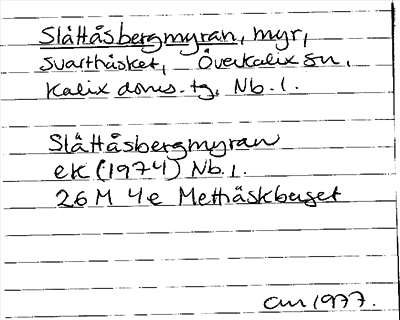 Slåttåsbergmyran, myr,
Svartbäsket, Överkalix sn,
Kalix doms. tg, Nb. l.
Slåttåsbergmyran
ek (1974) Nb. l.
26 M 4e Mettäskberget
1977.